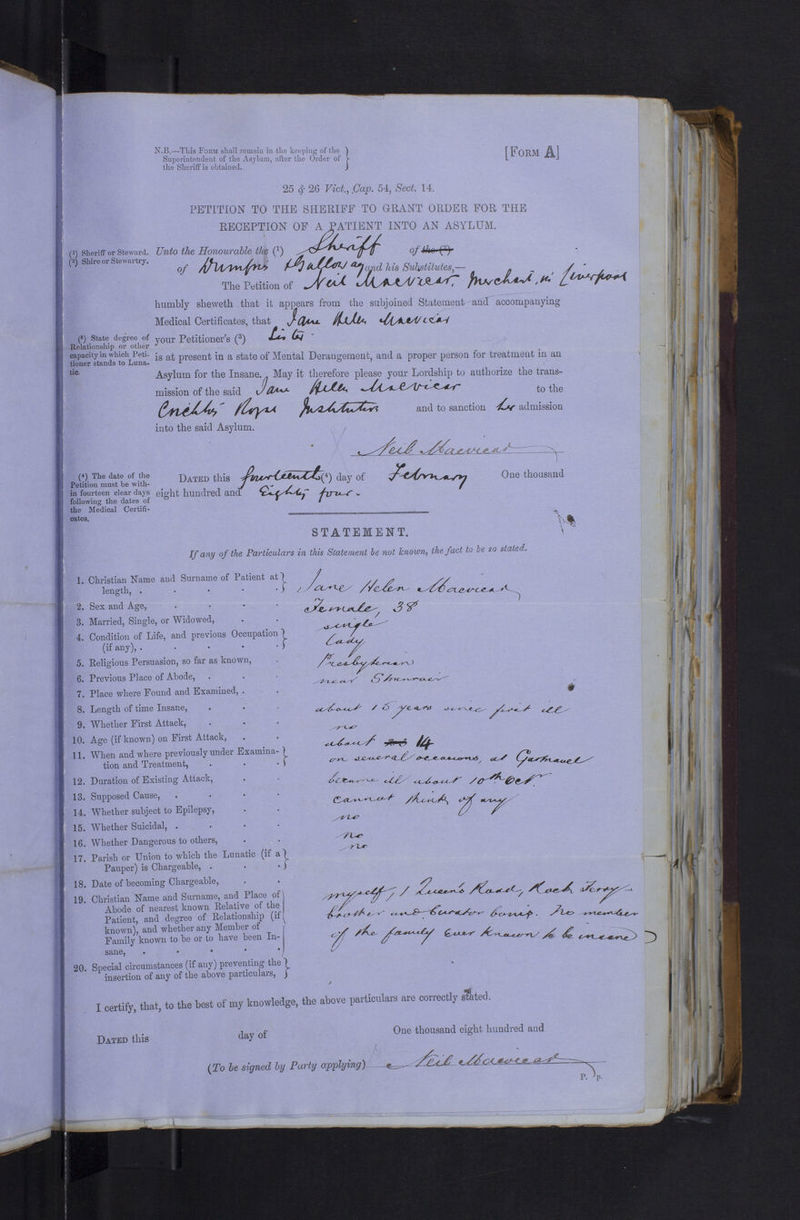 N.B.—This Form shall remain in the keeping of the
Superintendent of the Asylum, after the Order of
the Sheriff is obtained.
[Form A]
25 & 26 Vict., Cap. 54, Sect. 14.
PETITION TO THE SHERIFF TO GRANT ORDER FOR THE
RECEPTION OF A PATIENT INTO AN ASYLUM.
(1) Sheriff or Steward.
(2) Shire or Stewartry.
Unto the Honourable the (1) Sheriff of the (2)
of Dumfries & Galloway and his Substitutes,—
The Petition of Neil Macvicar, Merchant, in Liverpool
humbly sheweth that it appears from the subjoined Statement and accompanying
Medical Certificates, that Jane Helen Macvicar
(3) State degree of
Relationship or other
capacity in which Peti-
tioner stands to Luna-
tic.
your Petitioner's (3) Sister
is at present in a state of Mental Derangement, and a proper person for treatment in an
Asylum for the Insane. May it therefore please your Lordship to authorize the trans-
mission of the said Jane Helen Macvicar to the
Crichton Royal Institution and to sanction her admission
into the said Asylum.
Neil Macvicar
(4) The date of the
Petition must be with-
in fourteen clear days
following the dates of
the Medical Certifi-
cates.
Dated this fourteenth (4) day of February One thousand
eight hundred and Eighty four.
STATEMENT.
If any of the Particulars in this Statement be not known, the fact to be so stated.
1. Christian Name and Surname of Patient at
length, . Jane Helen Macvicar
2. Sex and Age, Female, 38
3. Married, Single, or Widowed, single
4. Condition of Life, and previous Occupation
(if any), . Lady
5. Religious Persuasion, so far as known, Presbyterian
6. Previous Place of Abode, . near Stranraer
7. Place where Found and Examined, .
8. Length of time Insane, about 15 years since first ill
9. Whether First Attack, no
10. Age (if known) on First Attack, about 14
11. When and where previously under Examina-
tion and Treatment, on several occasions, at Gartnavel
12. Duration of Existing Attack, became ill about 10th Oct.
13. Supposed Cause, . cannot think of any
14. Whether subject to Epilepsy, no
15. Whether Suicidal, . no
16. Whether Dangerous to others, no
17. Parish or Union to which the Lunatic (if a
Pauper) is Chargeable, .
18. Date of becoming Chargeable,
19. Christian Name and Surname, and Place of
Abode of nearest known Relative of the
Patient, and degree of Relationship (if
known), and whether any Member of
Family known to be or to have been In-
sane, .
myself, 1 Queen's Road, Rock Ferry
brother and curator bonis. No member
of the family ever known to be insane
20. Special circumstances (if any) preventing the
insertion of any of the above particulars,
I certify, that, to the best of my knowledge, the above particulars are correctly stated.
Dated this day of One thousand eight hundred and
(To be signed by Party applying) Neil Macvicar
P. p.